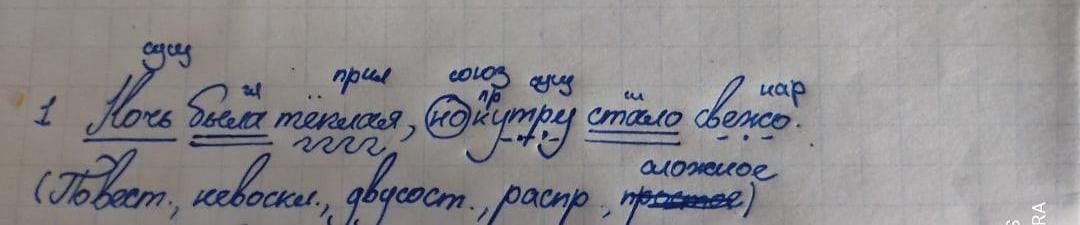 сущ
прил союз сущ
гл пр гл нар
1 Ночь была тёплая, но к утру стало свежо.
сложное
(Повест., невоскл., двусост., распр., простое)
RA